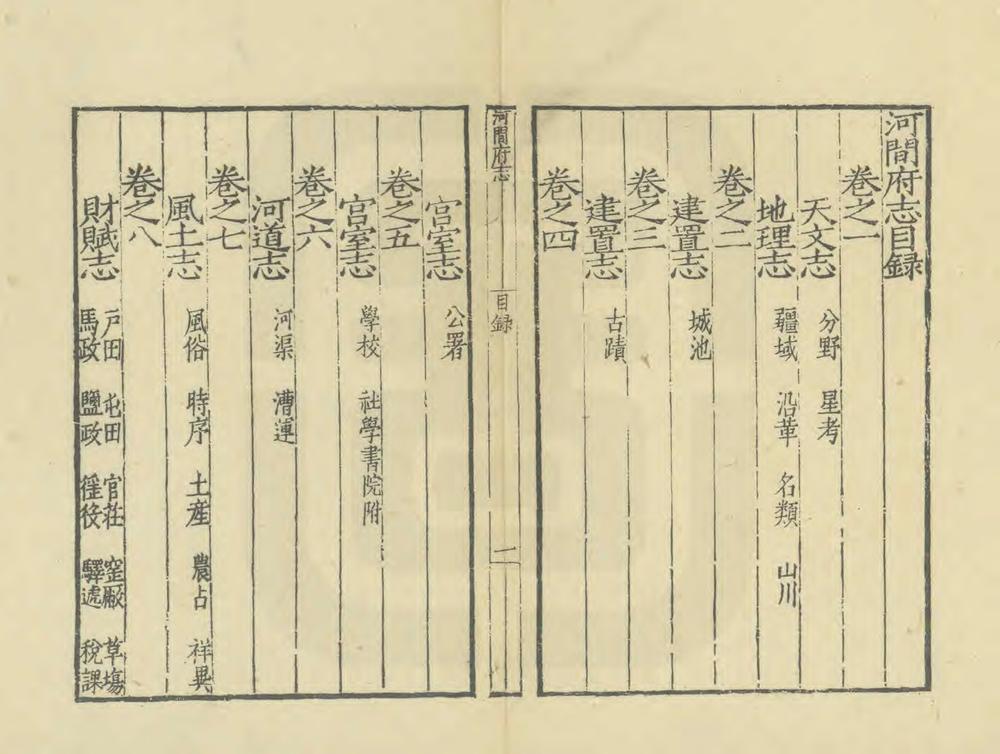 河間府志目録
卷之一
天文志 分野 星考
地理志 疆域 沿革 名類 山川
卷之二
建置志 城池
卷之三
建置志 古蹟
卷之四
河間府志 目録 一
宫室志 公署
卷之五
宫室志 學校 社學書院附
卷之六
河道志 河渠 漕運
卷之七
風土志 風俗 時序 土産 農占 祥異
卷之八
財賦志 戸田 屯田 官莊 窑廠 草塲
馬政 鹽政 徭役 驛遞 稅課